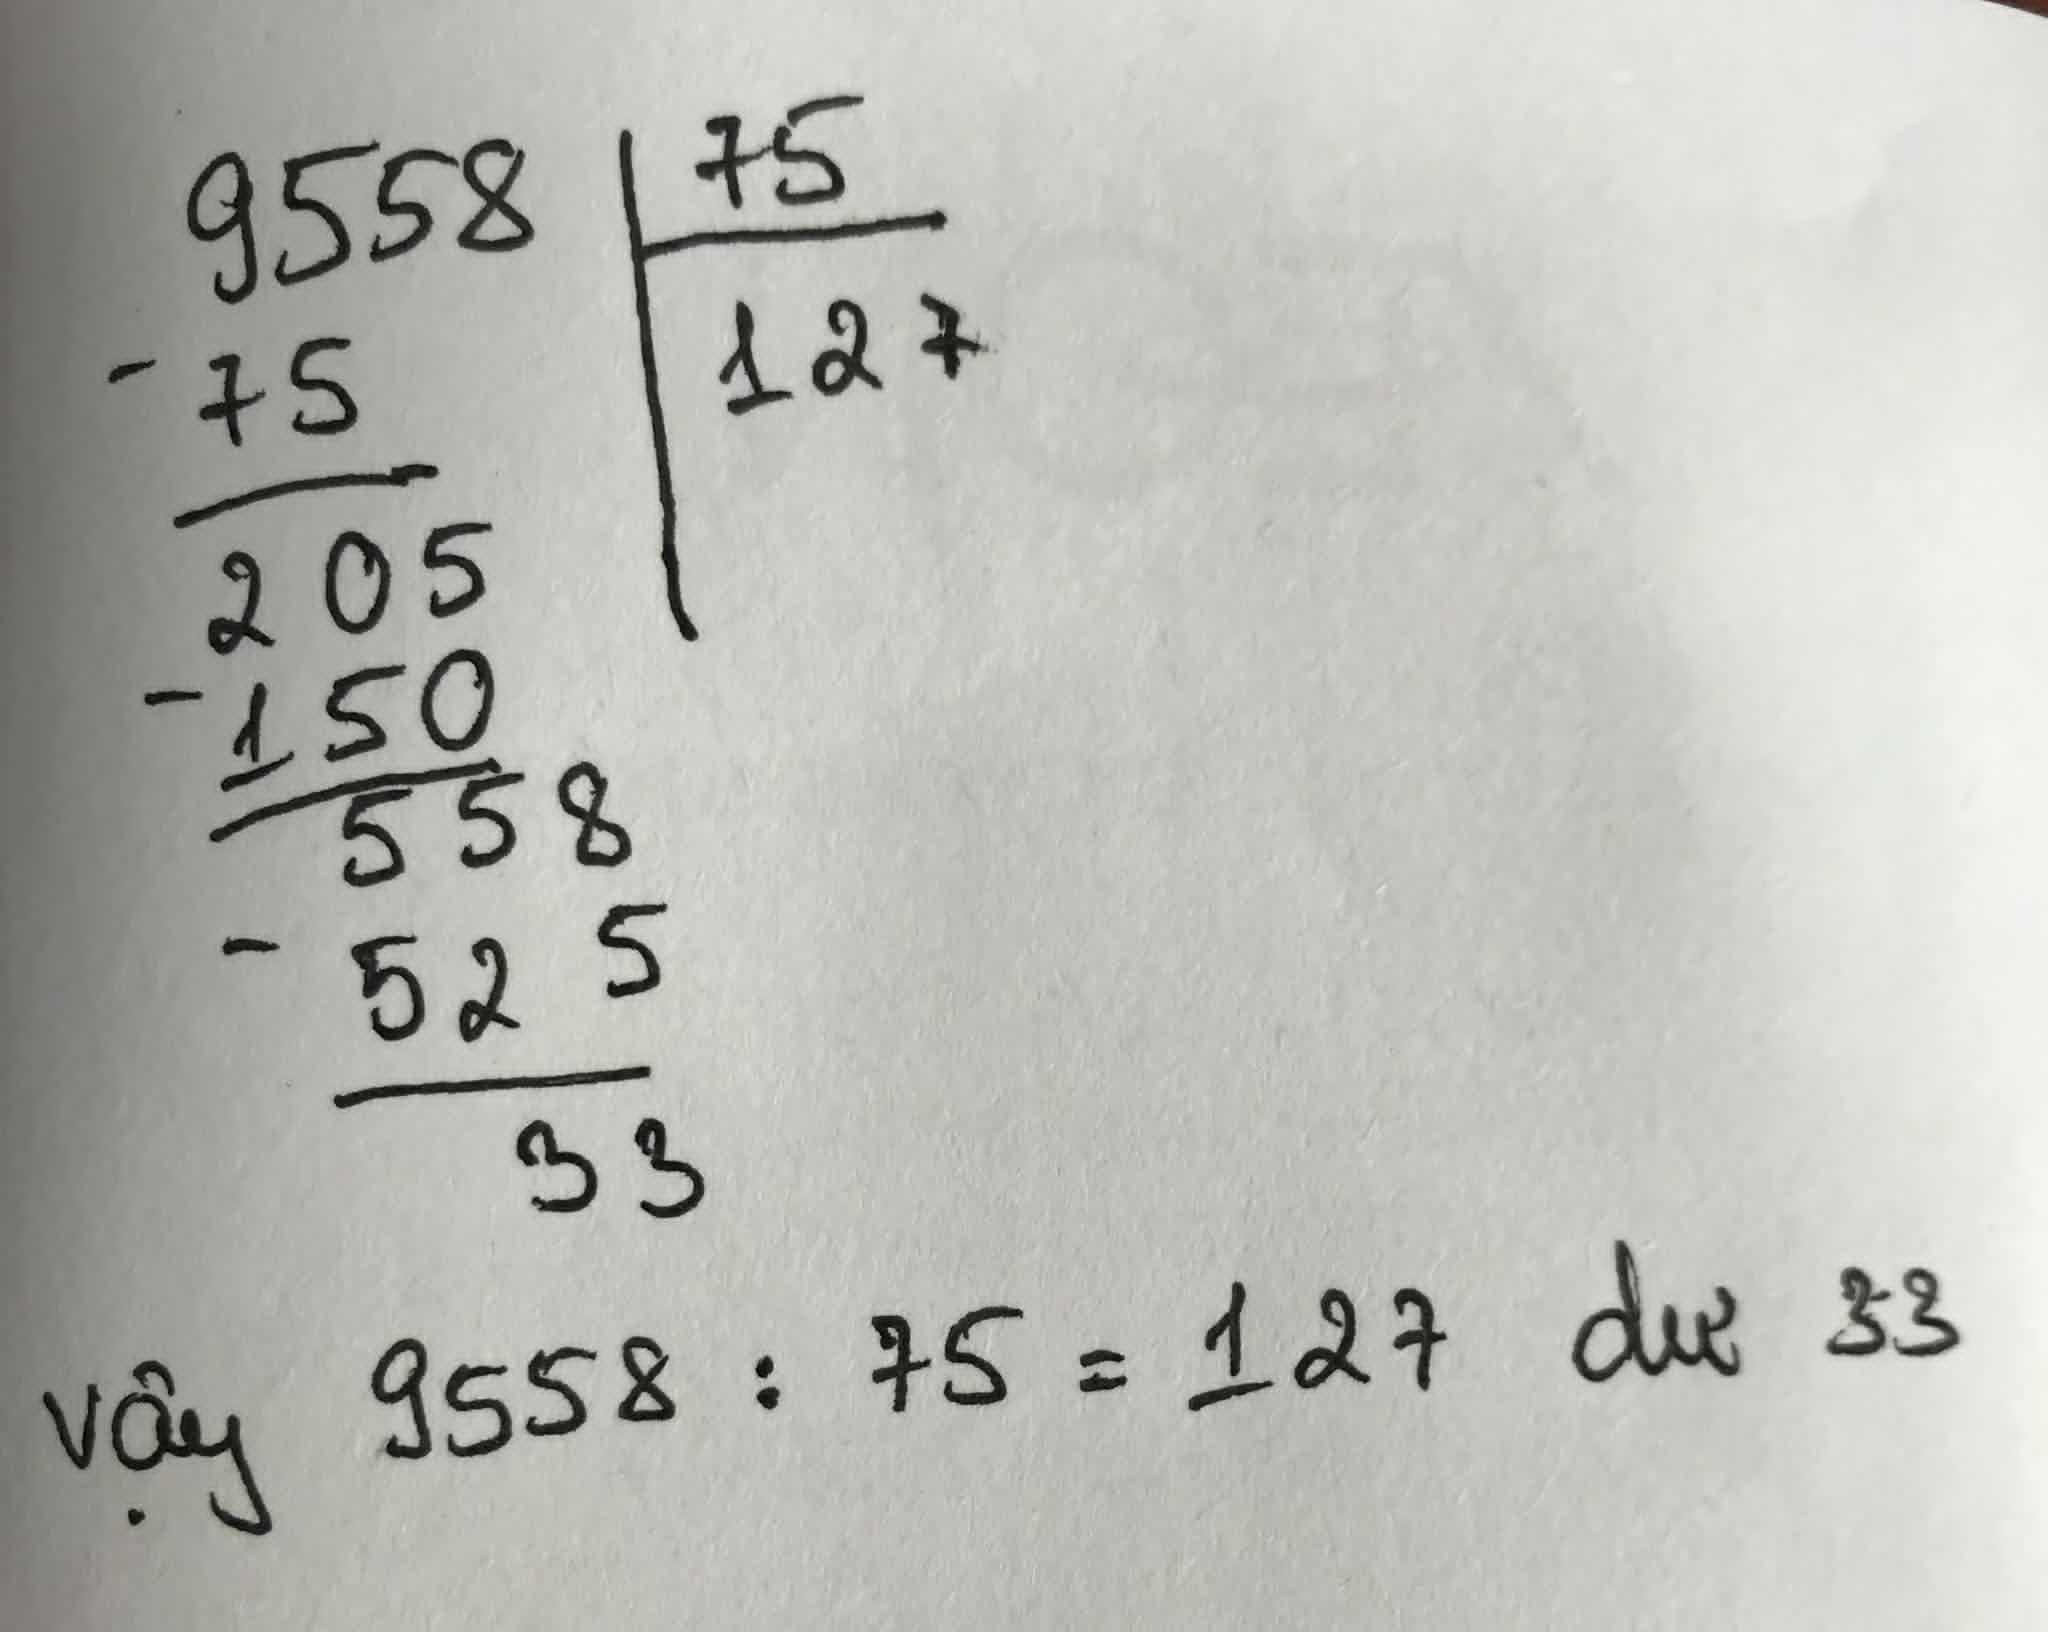 9558 75
- 75 127
205
- 150
558
- 525
33
vậy 9558 : 75 = 127 dư 33